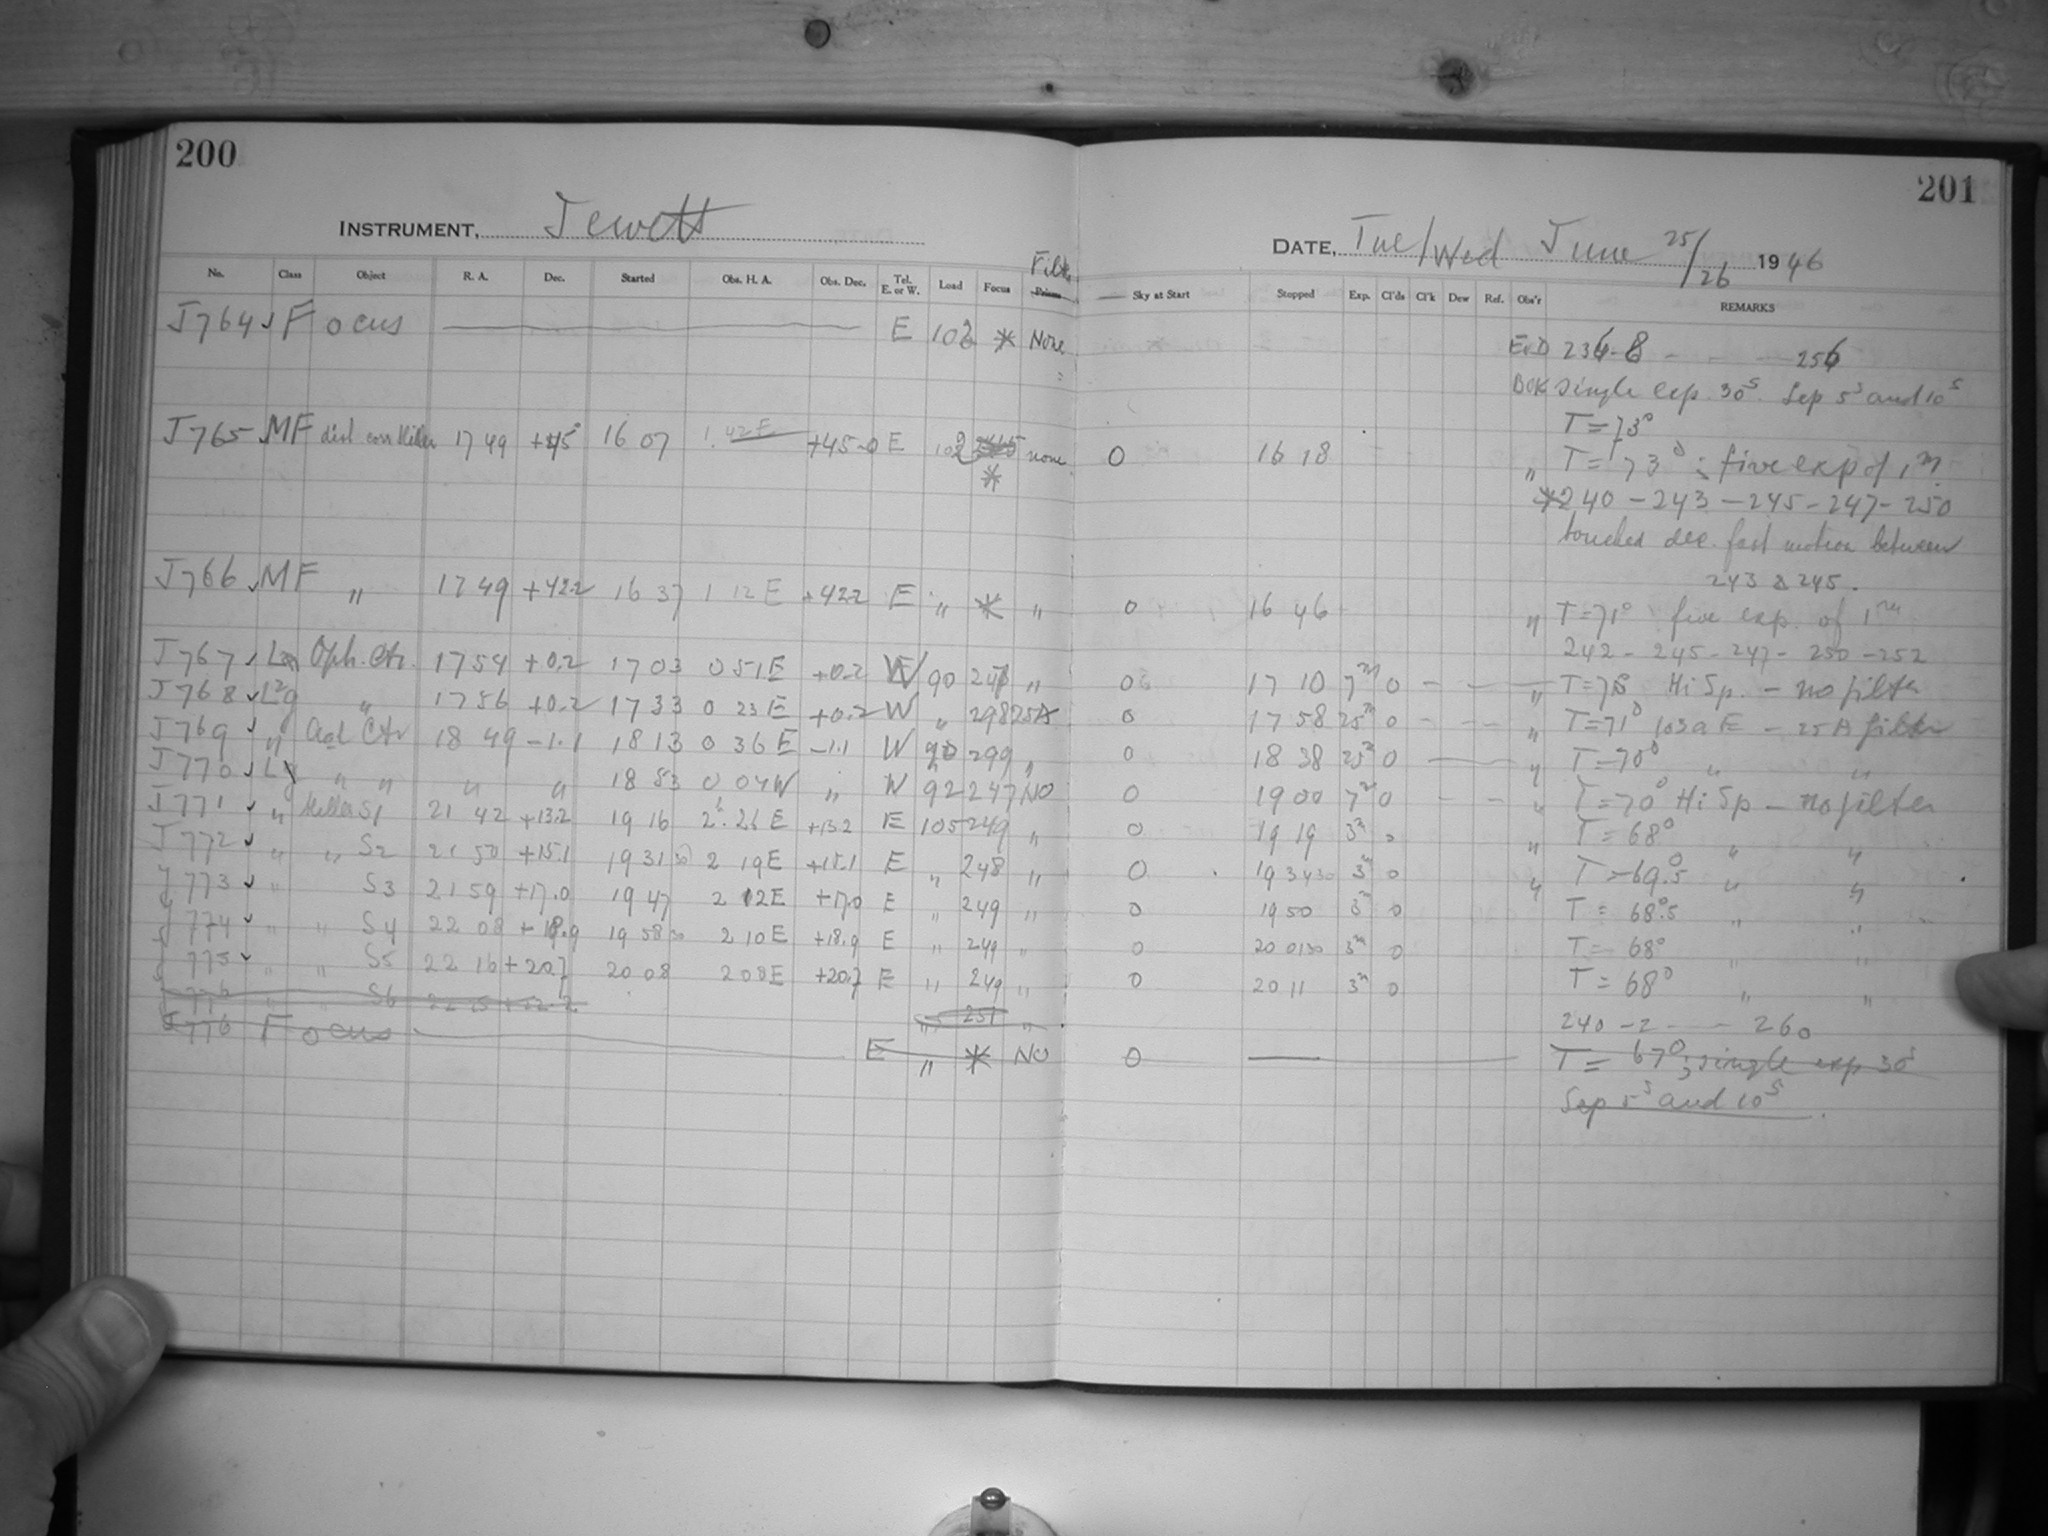 200
INSTRUMENT, Jewett
No. Class Object R. A. Dec. Started Obs. H. A. Obs. Dec. Tel. E. or W. Load Focus Filter Prism
J764 ✓ Focus E 102 * None
J765 MF dist corr Miller 17 49 +45° 16 07 1 42 E +45.0 E 102 * none
J766 ✓ MF " 17 49 +42.2 16 37 1 12 E +42.2 E " * "
J767 ✓ Oph. Ctr. 17 54 +0.2 17 03 0 51 E +0.2 W 90 247 "
J768 ✓ L2g " 17 56 +0.2 17 33 0 23 E +0.2 W " 298 25A
J769 ✓ " Aql Ctr 18 49 -1.1 18 13 0 36 E -1.1 W 90 299 "
J770 ✓ Lg " " " " 18 53 0 04 W " W 92 247 NO
J771 ✓ " Miller S1 21 42 +13.2 19 16 2 26 E +13.2 E 105 249 "
J772 ✓ " " S2 21 50 +15.1 19 31 30 2 19 E +15.1 E " 248 "
J773 ✓ " S3 21 59 +17.0 19 47 2 12 E +17.0 E " 249 "
J774 ✓ " " S4 22 08 +18.9 19 58 30 2 10 E +18.9 E " 249 "
J775 ✓ " " S5 22 16 +20.7 20 08 2 08 E +20.7 E " 249 "
776 " " S6 " 251 "
J776 Focus E " * NO
201
DATE, Tue/Wed June 25/26 1946
Sky at Start Stopped Exp. Cl'ds Cl'k Dew Ref. Obs'r REMARKS
236-8 - - - 256
BOK Single exp. 30s. Sep 5s and 10s
T=73°
0 16 18 " T=73°; five exp of 1m
*240 - 243 - 245 - 247 - 250
touched dec. fast motion between
243 & 245.
0 16 46 " T=71° five exp. of 1m
242 - 245 - 247 - 250 - 252
0 17 10 7m 0 - - - " Hi Sp. - no filter
0 17 58 25m 0 " T=71° 103a E - 25A filter
0 18 38 25m 0 " T=70° " "
0 19 00 7m 0 - - - " T=70° Hi Sp - no filter
0 19 19 3m 0 " T=68° " "
0 19 34 30 3m 0 " T=69.5° " "
0 19 50 3m 0 T=68.5° " "
0 20 01 30 3m 0 T=68° " "
0 20 11 3m 0 T=68° " "
240 - 2 - - - 260
0 T=67°; single exp 30s
Sep 5s and 10s.